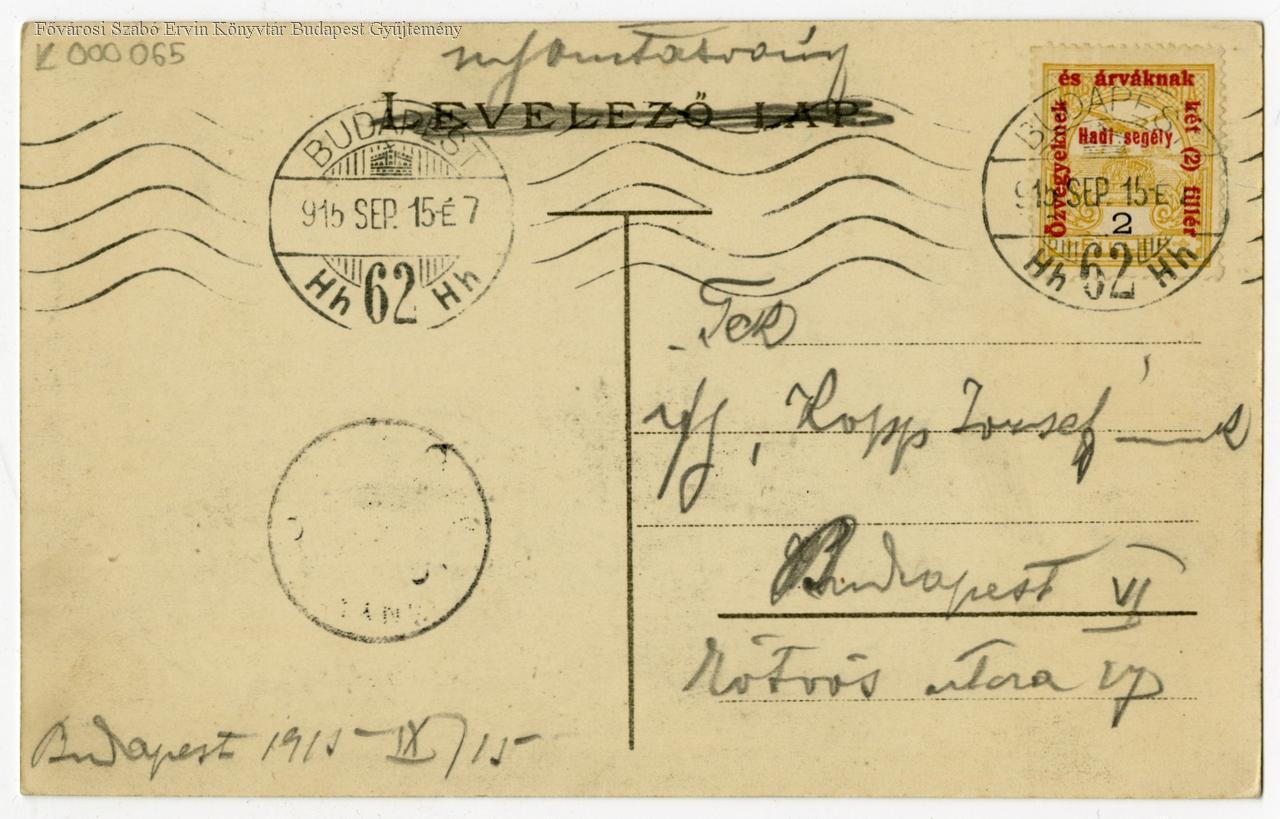 Fővárosi Szabó Ervin Könyvtár Budapest Gyűjtemény
K 000065
nyomtatvány
LEVELEZŐ LAP.
BUDAPEST
915 SEP. 15·É 7
Hh 62 Hh
Özvegyeknek és árváknak két (2) fillér
Hadi segély
2
BUDAPEST
915 SEP. 15·É 7
Hh 62 Hh
Tek
ifj, Kopp József nek
Budapest VI
Eötvös utca
Budapest 1915 IX/15